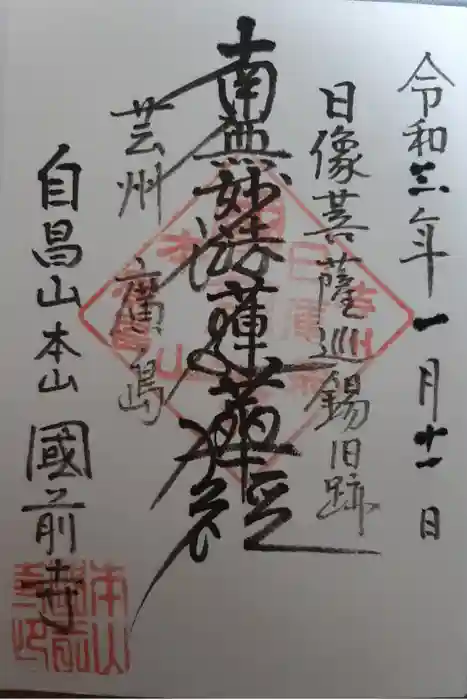 令和三年一月十一日
日像菩薩巡錫旧跡
南無妙法蓮華経
芸州 廣島
自昌山本山 國前寺